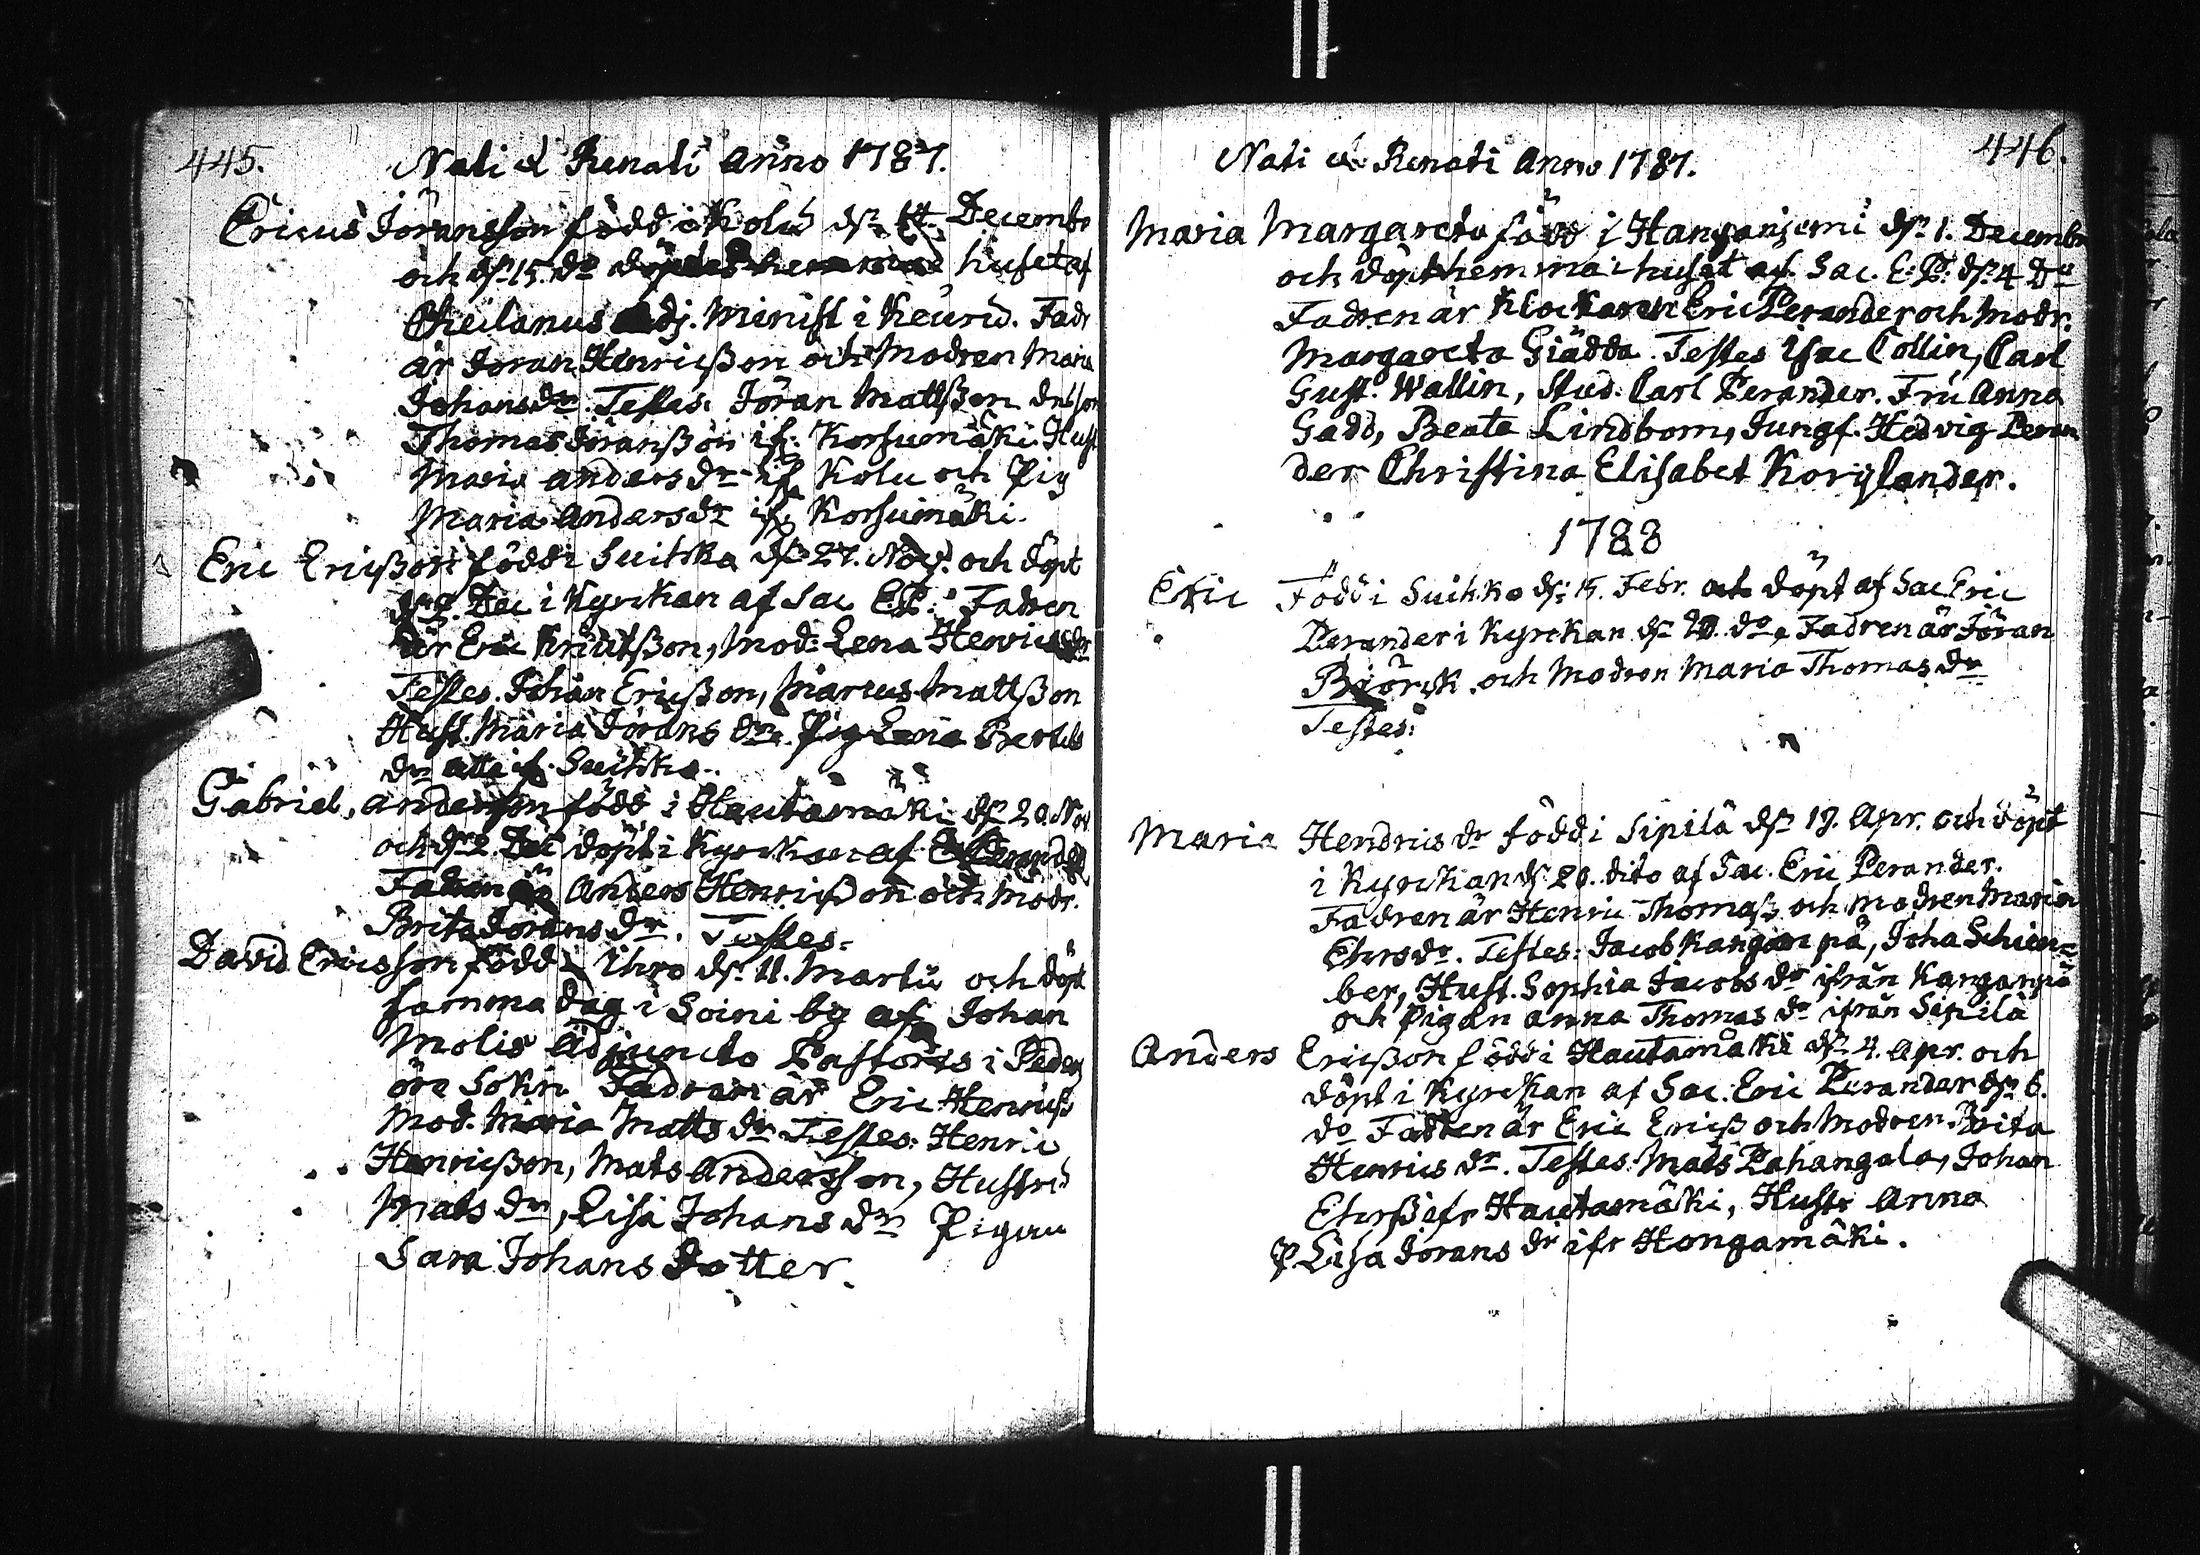 445.
Nati et Renati Anno 1787.
Ericus Jöransson född i Kolu d. 14. Decembr
och d. 15. do döptes hemma i huset af
Cheilanus Adj. Minist i Keurú. Fadr
är Jöran Henricßon och Modren Maria
Johansdr. Testes: Jöran Mattßon
Thomas Jöranßon if. Korsumäki. Hust
Maria Andersdr if. Kolu och Pig
Maria Andersdr if. Korsumäki.
Eric Ericßon född i Suitkka d. 27. Nov. och döpt
d. 2. Dec i Kyrckan af Sac E.P. Fadren
är Eric Knutßon, Mod: Lena Henricsdr
Testes. Johan Ericßon, Marcus Mattßon
Hust. Maria Jörans dr. Pig Lena Bertils
dr alla if. Suitkka.
Gabriel, Andersson född i Hautamäki d. 20. Nov
och d. 2. Dec döpt i Kyrckan af E Perander
Fadren är Anders Henricßon och Modr.
Brita Jörans dr. Testes:
David Ericsson född i Ihro d. 11. Martii och döpt
samma dag i Soini by af Johan
Molis Adjuncto Pastoris i Peders
öre Sokn Fadren är Eric Henricß
Mod. Maria Matts dr Testes: Henric
Henricßon, Mats Andersson, Hustru
Mats dr, Lisa Johans dr Pigan
Sara Johans Dotter.
446.
Nati et Renati Anno 1787.
Maria Margareta född i Hanganjemi d. 1. Decembr
och döpt hemma i huset af Sac. E. P. d. 4 Do
Fadren är Klockaren Eric Perander och Modr.
Margareta Giädda. Testes Isac Collin, Carl
Gust. Wallin, Stud. Carl Perander. Fru Anna
Gadd, Beata Lindbom, Jungf. Hedvig Peran
der Christina Elisabet Korglander.
1788
Eric Född i Suitkko d. 15. Febr. och döpt af Sac Eric
Perander i Kyrckan d. 20. do, Fadren är Jöran
Biörck och Modren Maria Thomas dr
Testes:
Maria Hendrics dr född i Sipilä d. 19. Apr. och döpt
i Kyrckan d. 20. dito af Sac. Eric Perander.
Fadren är Henric Thomaß och Modren Maria
Ehrsdr. Testes: Jacob Kanganpä, Joha Schien=
ber, Hust. Sophia Jacobs dr ifrån Kanganpä
och Pigan Anna Thomas dr ifrån Sipilä
Anders Ericßon född i Hautamäki d. 4. Apr. och
döpt i Kyrckan af Sac. Eric Perander d. 6.
do Fadren är Eric Ericß och Modren Brita
Henrics dr. Testes: Mats Pahangala, Johan
Ehrsß ifr Hautamäki, Hustr Anna
P Lisa Jörans dr ifr Hongamäki.